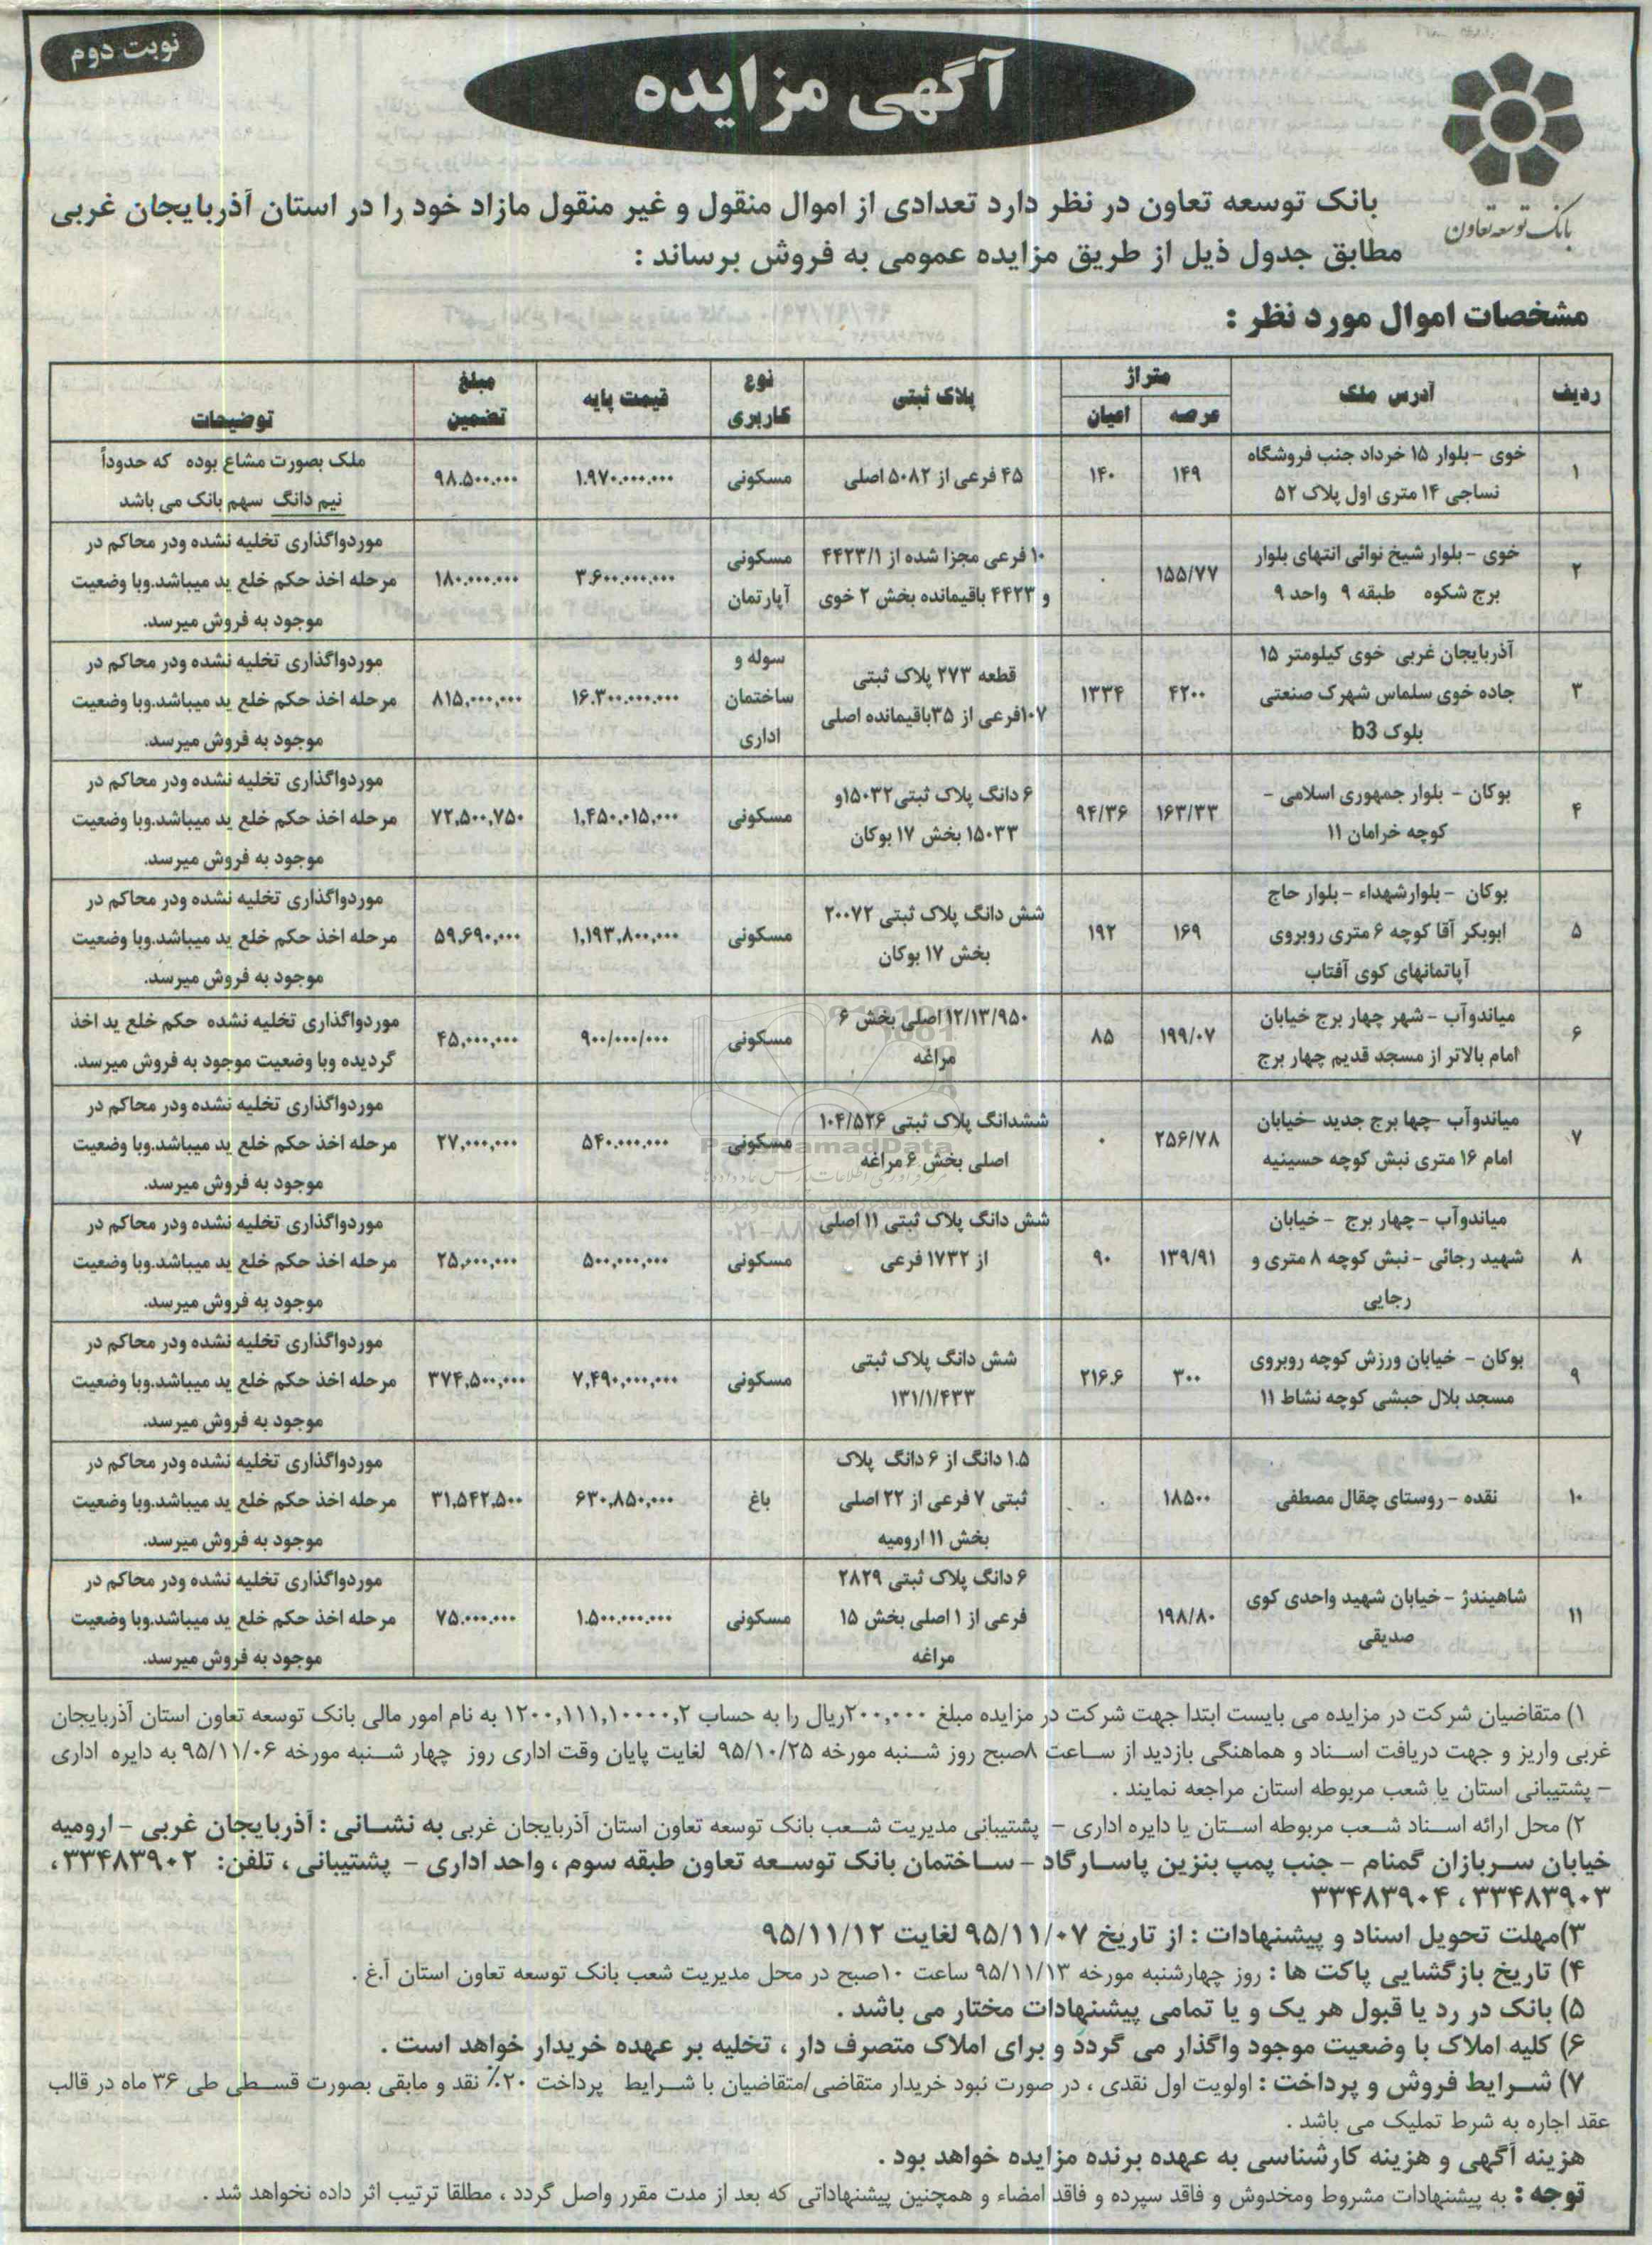 نوبت دوم
آگهی مزایده
بانک توسعه تعاون
بانک توسعه تعاون در نظر دارد تعدادی از اموال منقول و غیر منقول مازاد خود را در استان آذربایجان غربی
مطابق جدول ذیل از طریق مزایده عمومی به فروش برساند :
مشخصات اموال مورد نظر :
ردیف	آدرس ملک	متراژ	پلاک ثبتی	نوع کاربری	قیمت پایه	مبلغ تضمین	توضیحات
عرصه	اعیان
۱	خوی -بلوار ۱۵ خرداد جنب فروشگاه نساجی ۱۴ متری اول پلاک ۵۲	۱۴۹	۱۴۰	۴۵ فرعی از ۵۰۸۲ اصلی	مسکونی	۱.۹۷۰.۰۰۰.۰۰۰	۹۸.۵۰۰.۰۰۰	ملک بصورت مشاع بوده که حدوداً نیم دانگ سهم بانک می باشد
۲	خوی -بلوار شیخ نوائی انتهای بلوار برج شکوه طبقه ۹ واحد ۹	۱۵۵/۷۷	۰	۱۰ فرعی مجزا شده از ۴۴۲۳/۱ و ۴۴۲۳ باقیمانده بخش ۲ خوی	مسکونی آپارتمان	۳.۶۰۰.۰۰۰.۰۰۰	۱۸۰.۰۰۰.۰۰۰	موردواگذاری تخلیه نشده ودر محاکم در مرحله اخذ حکم خلع ید میباشد.وبا وضعیت موجود به فروش میرسد.
۳	آذربایجان غربی خوی کیلومتر ۱۵ جاده خوی سلماس شهرک صنعتی بلوک b3	۴۲۰۰	۱۳۳۴	قطعه ۲۷۳ پلاک ثبتی ۱۰۷فرعی از ۳۵باقیمانده اصلی	سوله و ساختمان اداری	۱۶.۳۰۰.۰۰۰.۰۰۰	۸۱۵,۰۰۰,۰۰۰	موردواگذاری تخلیه نشده ودر محاکم در مرحله اخذ حکم خلع ید میباشد.وبا وضعیت موجود به فروش میرسد.
۴	بوکان - بلوار جمهوری اسلامی - کوچه خرامان ۱۱	۱۶۳/۳۳	۹۴/۳۶	۶ دانگ پلاک ثبتی۱۵۰۳۲و ۱۵۰۳۳ بخش ۱۷ بوکان	مسکونی	۱,۴۵۰,۰۱۵,۰۰۰	۷۲,۵۰۰,۷۵۰	موردواگذاری تخلیه نشده ودر محاکم در مرحله اخذ حکم خلع ید میباشد.وبا وضعیت موجود به فروش میرسد.
۵	بوکان - بلوارشهداء - بلوار حاج ابوبکر آقا کوچه ۶ متری روبروی آپاتمانهای کوی آفتاب	۱۶۹	۱۹۲	شش دانگ پلاک ثبتی ۲۰۰۷۲ بخش ۱۷ بوکان	مسکونی	۱,۱۹۳,۸۰۰,۰۰۰	۵۹,۶۹۰,۰۰۰	موردواگذاری تخلیه نشده ودر محاکم در مرحله اخذ حکم خلع ید میباشد.وبا وضعیت موجود به فروش میرسد.
۶	میاندوآب -شهر چهار برج خیابان امام بالاتر از مسجد قدیم چهار برج	۱۹۹/۰۷	۸۵	۱۲/۱۳/۹۵۰ اصلی بخش ۶ مراغه	مسکونی	۹۰۰/۰۰۰/۰۰۰	۴۵,۰۰۰,۰۰۰	موردواگذاری تخلیه نشده حکم خلع ید اخذ گردیده وبا وضعیت موجود به فروش میرسد.
۷	میاندوآب -چها برج جدید -خیابان امام ۱۶ متری نبش کوچه حسینیه	۲۵۶/۷۸	۰	ششدانگ پلاک ثبتی ۱۰۴/۵۲۶ اصلی بخش ۶ مراغه	مسکونی	۵۴۰.۰۰۰.۰۰۰	۲۷,۰۰۰,۰۰۰	موردواگذاری تخلیه نشده ودر محاکم در مرحله اخذ حکم خلع ید میباشد.وبا وضعیت موجود به فروش میرسد.
۸	میاندوآب -چهار برج - خیابان شهید رجائی - نبش کوچه ۸ متری و رجایی	۱۳۹/۹۱	۹۰	شش دانگ پلاک ثبتی ۱۱ اصلی از ۱۷۳۲ فرعی	مسکونی	۵۰۰,۰۰۰,۰۰۰	۲۵,۰۰۰,۰۰۰	موردواگذاری تخلیه نشده ودر محاکم در مرحله اخذ حکم خلع ید میباشد.وبا وضعیت موجود به فروش میرسد.
۹	بوکان - خیابان ورزش کوچه روبروی مسجد بلال حبشی کوچه نشاط ۱۱	۳۰۰	۲۱۶.۶	شش دانگ پلاک ثبتی ۱۳۱/۱/۴۳۳	مسکونی	۷,۴۹۰,۰۰۰,۰۰۰	۳۷۴,۵۰۰,۰۰۰	موردواگذاری تخلیه نشده ودر محاکم در مرحله اخذ حکم خلع ید میباشد.وبا وضعیت موجود به فروش میرسد.
۱۰	نقده - روستای چقال مصطفی	۱۸۵۰۰	۰	۱.۵ دانگ از ۶ دانگ پلاک ثبتی ۷ فرعی از ۲۲ اصلی بخش ۱۱ ارومیه	باغ	۶۳۰,۸۵۰,۰۰۰	۳۱,۵۴۲,۵۰۰	موردواگذاری تخلیه نشده ودر محاکم در مرحله اخذ حکم خلع ید میباشد.وبا وضعیت موجود به فروش میرسد.
۱۱	شاهیندژ - خیابان شهید واحدی کوی صدیقی	۱۹۸/۸۰	۶ دانگ پلاک ثبتی ۲۸۲۹ فرعی از ۱ اصلی بخش ۱۵ مراغه	مسکونی	۱.۵۰۰.۰۰۰.۰۰۰	۷۵.۰۰۰.۰۰۰	موردواگذاری تخلیه نشده ودر محاکم در مرحله اخذ حکم خلع ید میباشد.وبا وضعیت موجود به فروش میرسد.
ParsNamadData
۰۲۱-۸۸۳۴۹۶۷۰-۵
۱) متقاضیان شرکت در مزایده می بایست ابتدا جهت شرکت در مزایده مبلغ ۲۰۰,۰۰۰ریال را به حساب ۱۲۰۰,۱۱۱,۱۰۰۰۰,۲ به نام امور مالی بانک توسعه تعاون استان آذربایجان
غربی واریز و جهت دریافت اسناد و هماهنگی بازدید از ساعت ۸صبح روز شنبه مورخه ۹۵/۱۰/۲۵ لغایت پایان وقت اداری روز چهار شنبه مورخه ۹۵/۱۱/۰۶ به دایره اداری
- پشتیبانی استان یا شعب مربوطه استان مراجعه نمایند .
۲) محل ارائه اسناد شعب مربوطه استان یا دایره اداری - پشتیبانی مدیریت شعب بانک توسعه تعاون استان آذربایجان غربی به نشانی : آذربایجان غربی - ارومیه
خیابان سربازان گمنام - جنب پمپ بنزین پاسارگاد - ساختمان بانک توسعه تعاون طبقه سوم ، واحد اداری - پشتیبانی ، تلفن: ۳۳۴۸۳۹۰۲ ،
۳۳۴۸۳۹۰۳ ، ۳۳۴۸۳۹۰۴
۳)مهلت تحویل اسناد و پیشنهادات : از تاریخ ۹۵/۱۱/۰۷ لغایت ۹۵/۱۱/۱۲
۴) تاریخ بازگشایی پاکت ها : روز چهارشنبه مورخه ۹۵/۱۱/۱۳ ساعت ۱۰صبح در محل مدیریت شعب بانک توسعه تعاون استان آ.غ .
۵) بانک در رد یا قبول هر یک و یا تمامی پیشنهادات مختار می باشد .
۶) کلیه املاک با وضعیت موجود واگذار می گردد و برای املاک متصرف دار ، تخلیه بر عهده خریدار خواهد است .
۷) شرایط فروش و پرداخت : اولویت اول نقدی ، در صورت نبود خریدار متقاضی/متقاضیان با شرایط پرداخت ۲۰٪ نقد و مابقی بصورت قسطی طی ۳۶ ماه در قالب
عقد اجاره به شرط تملیک می باشد .
هزینه آگهی و هزینه کارشناسی به عهده برنده مزایده خواهد بود .
توجه : به پیشنهادات مشروط ومخدوش و فاقد سپرده و فاقد امضاء و همچنین پیشنهاداتی که بعد از مدت مقرر واصل گردد ، مطلقا ترتیب اثر داده نخواهد شد .